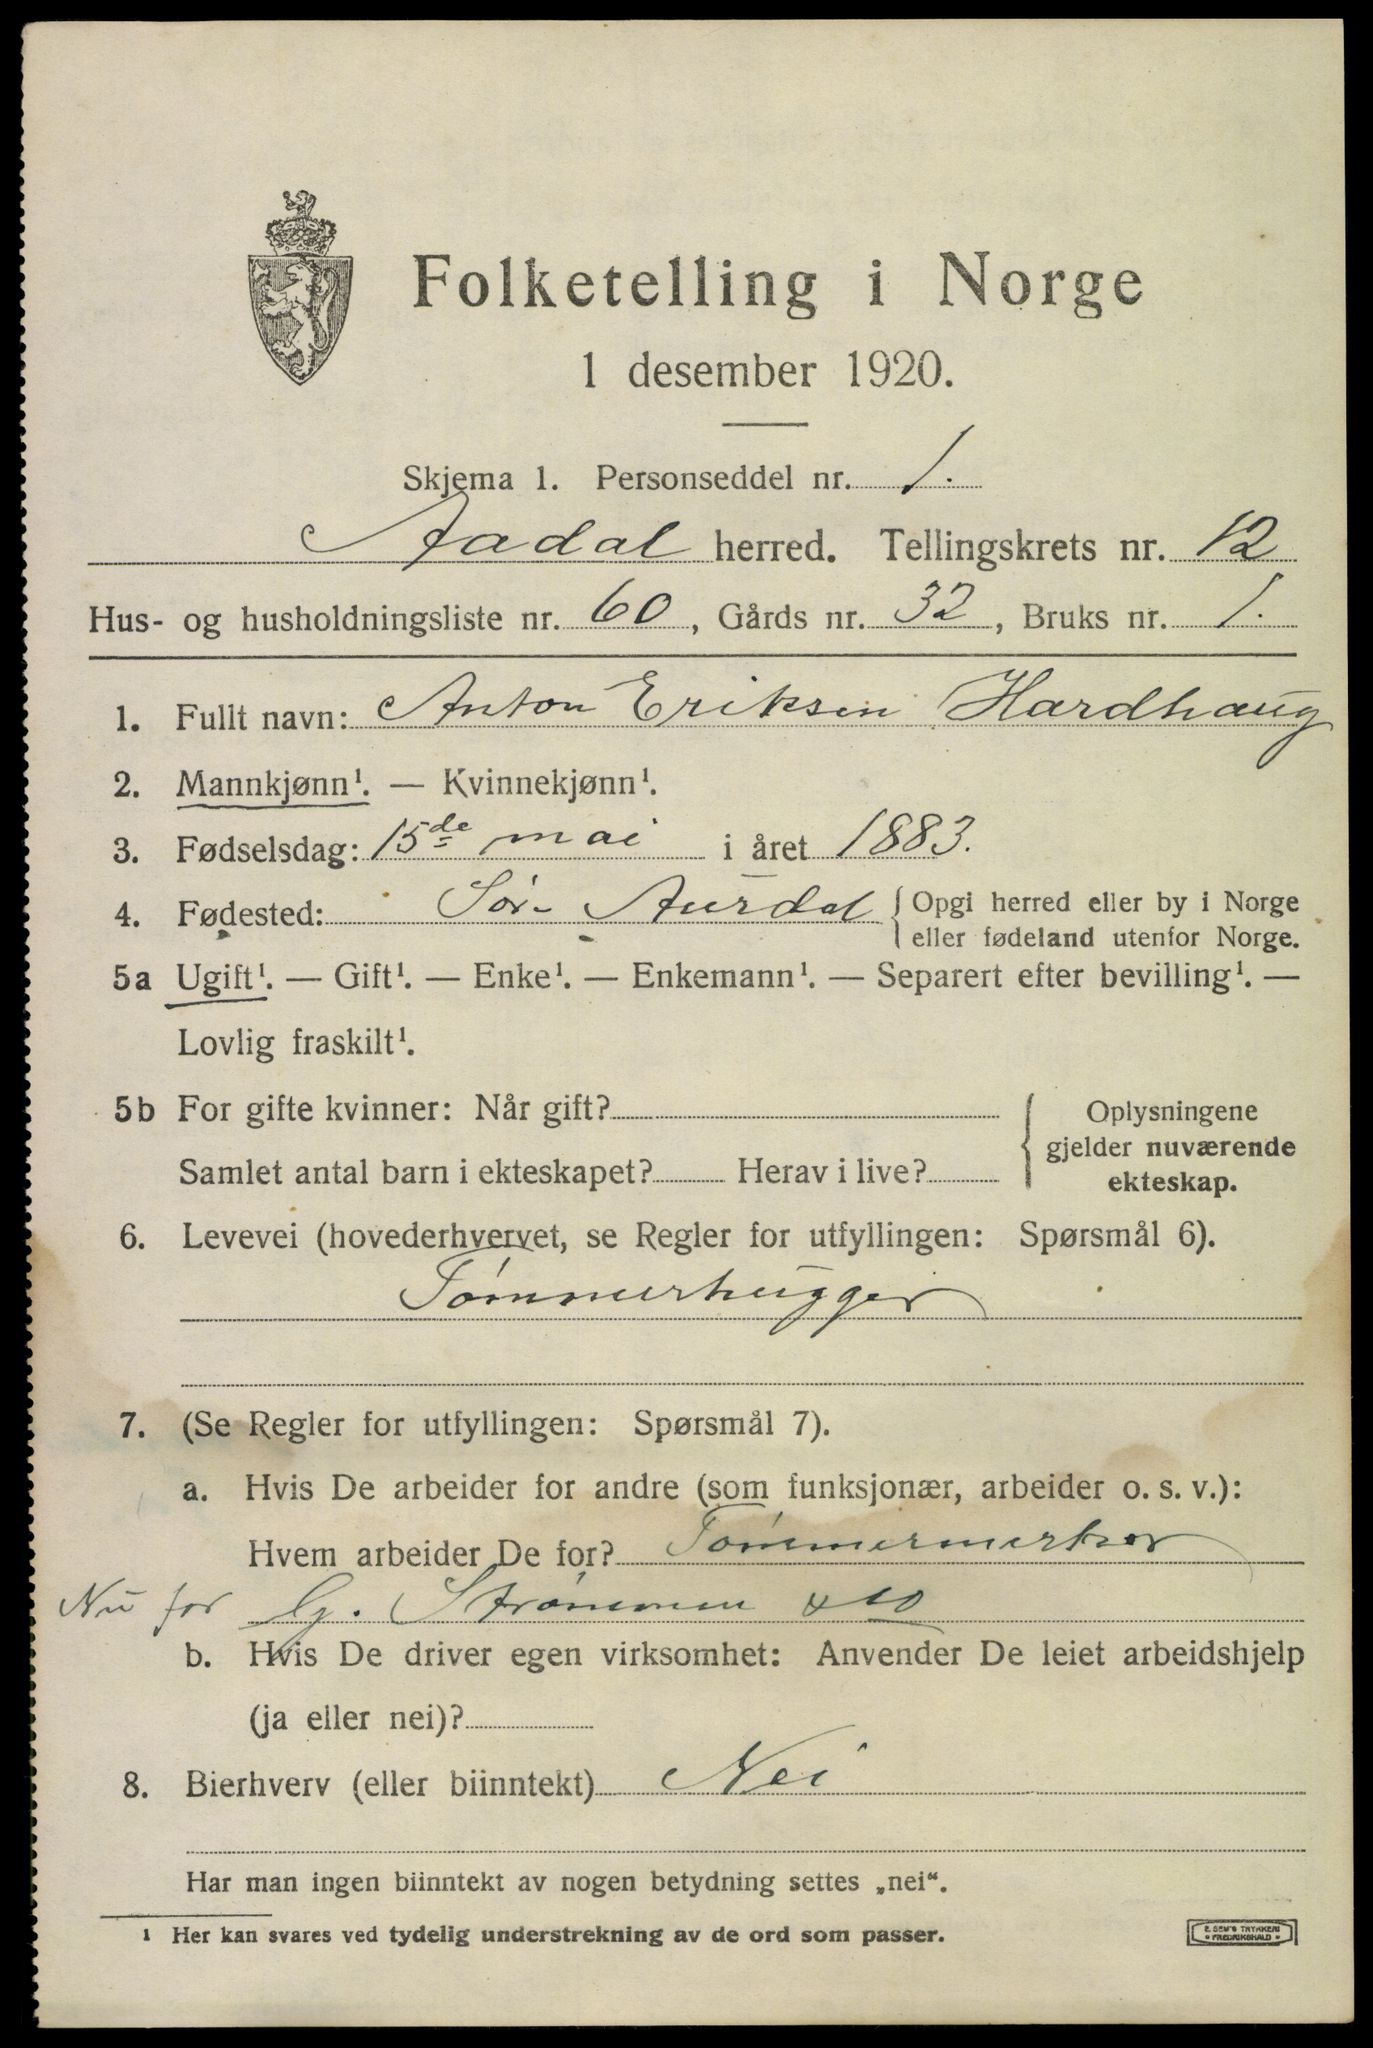 Folketelling i Norge
1 desember 1920.
Skjema 1. Personseddel nr. 1.
Aadal herred. Tellingskrets nr. 12
Hus- og husholdningsliste nr. 60, Gårds nr. 32, Bruks nr. 1.
1. Fullt navn: Anton Eriksen Hardhaug
2. Mannkjønn¹. — Kvinnekjønn¹.
3. Fødselsdag: 15de mai i året 1883.
4. Fødested: Sør-Aurdal { Opgi herred eller by i Norge
eller fødeland utenfor Norge.
5a Ugift¹. — Gift¹. — Enke¹. — Enkemann¹. — Separert efter bevilling¹. —
Lovlig fraskilt¹.
5b For gifte kvinner: Når gift?
Samlet antal barn i ekteskapet? Herav i live?
{ Oplysningene
gjelder nuværende
ekteskap.
6. Levevei (hovederhvervet, se Regler for utfyllingen: Spørsmål 6).
Tømmerhugger
7. (Se Regler for utfyllingen: Spørsmål 7).
a. Hvis De arbeider for andre (som funksjonær, arbeider o. s. v.):
Hvem arbeider De for? Tømmermerker
Nu for G. Strømmen & Co
b. Hvis De driver egen virksomhet: Anvender De leiet arbeidshjelp
(ja eller nei)?
8. Bierhverv (eller biinntekt) Nei
Har man ingen biinntekt av nogen betydning settes „nei“.
¹ Her kan svares ved tydelig understrekning av de ord som passer.
E. SEM'S TRYKKERI
FREDRIKSHALD